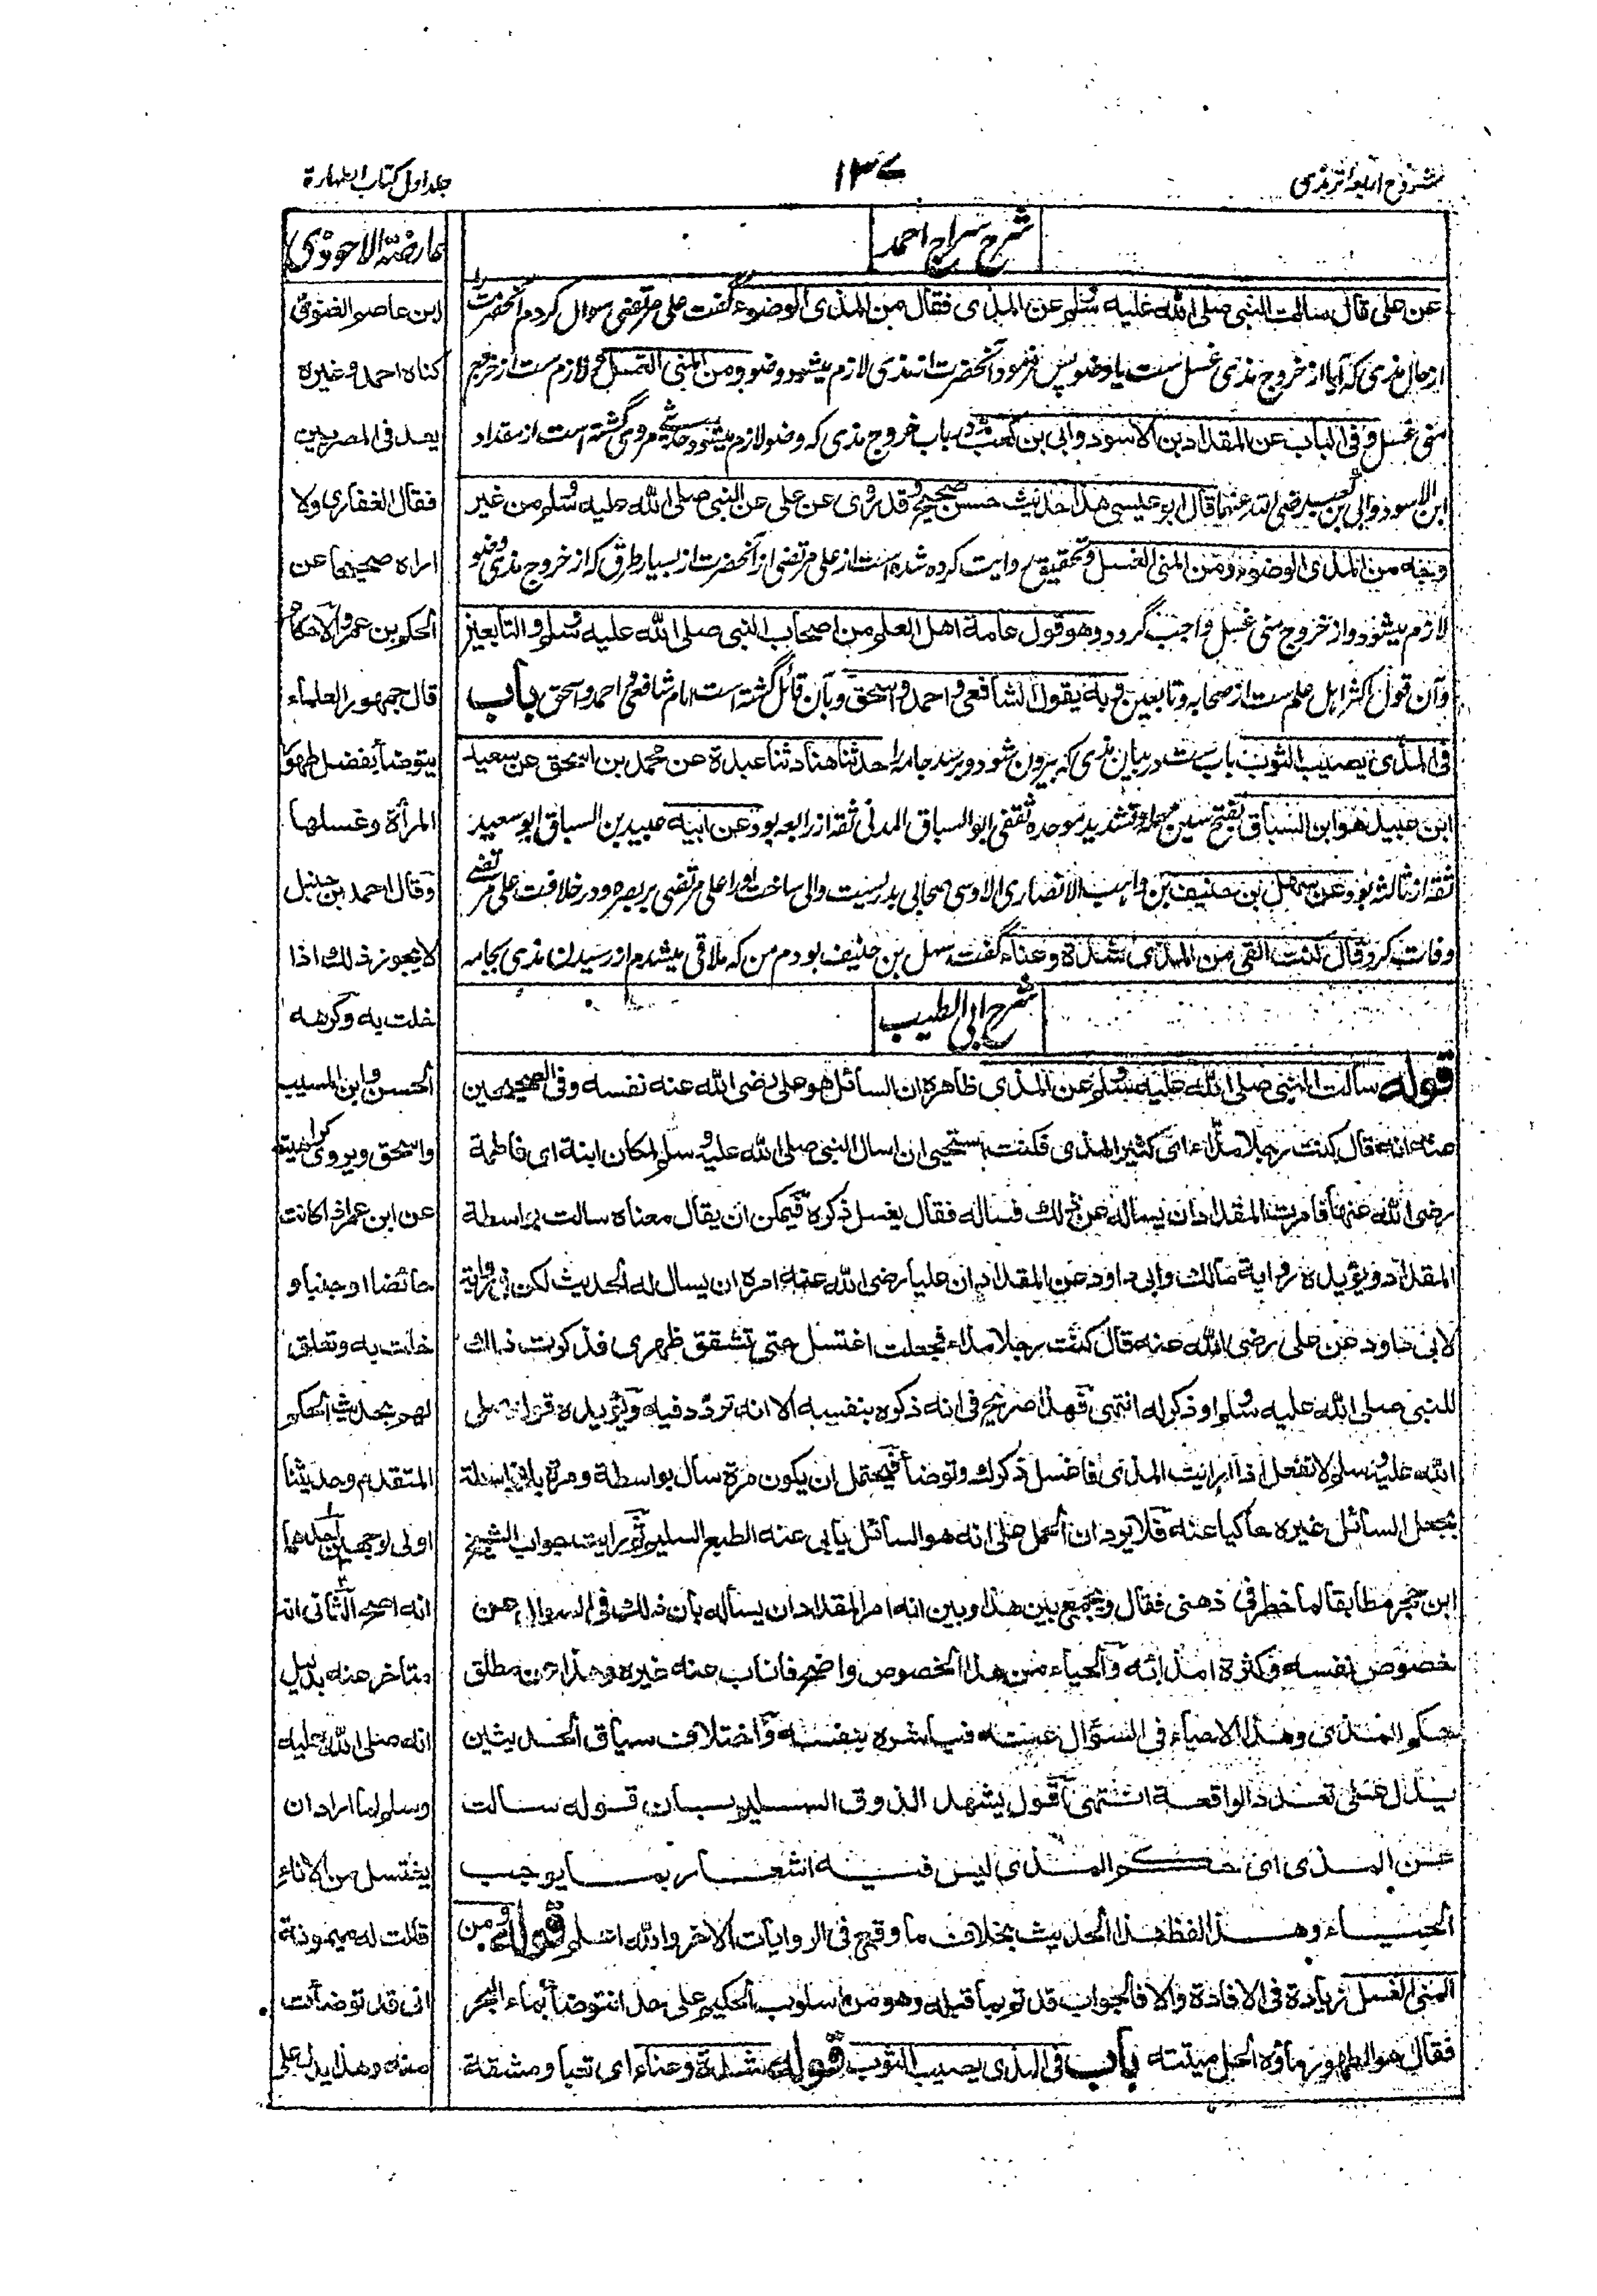 شروح اربعه ترمذی
١٣٧
جلد اول کتاب الطهارة
شرح سراج احمد
عن علی قال سالت النبی صلی الله علیه وسلم عن المذی فقال من المذی الوضوء گفت علی مرتضی سوال کردم آنحضرت را
از حال مذی که آیا از خروج مذی غسل ست یا وضو پس فرمود آنحضرت از مذی لازم میشود وضو ومن المنی الغسل و لازم ست از خروج
منی غسل وفی الباب عن المقداد بن الاسود وابی بن کعب در باب خروج مذی که وضو لازم میشود حدیثے مروی گشته است از مقداد
ابن الاسود وابی بن کعب رضی الله عنهما قال ابو عیسی هذا حدیث حسن صحیح وقد روی عن علی عن النبی صلی الله علیه وسلم من غیر
وجه من المذی الوضوء ومن المنی الغسل وتحقیق روایت کرده شده است از علی مرتضی از آنحضرت از بسیار طرق که از خروج مذی وضو
لازم میشود و از خروج منی غسل واجب گردد وهو قول عامة اهل العلم من اصحاب النبی صلی الله علیه وسلم والتابعین
وآن قول اکثر اہل علم ست از صحابه وتابعین وبه یقول الشافعی واحمد واسحق وبآن قائل گشته است امام شافعی واحمد واسحق باب
فی المذی یصیب الثوب باب ست در بیان مذی که بیرون شود وبرسد جامه را حدثنا هناد ثنا عبدة عن محمد بن اسحق عن سعید
ابن عبید هو ابن السباق بفتح سین مهمله وتشدید موحده ثقفی ابو السباق المدنی ثقه از رابعه بود عن ابیه عبید بن السباق ابو سعید
ثقه از ثالثه بود عن سهل بن حنیف بن واہب الانصاری الاوسی صحابی بدریست والی ساخت اورا علی مرتضی بر بصره ودر خلافت علی مرتضے
وفات کرد قال کنت القی من المذی شدة وعناء گفت سهل بن حنیف بودم من که ملاقی میشدم از رسیدن مذی بجامه
شرح ابی الطیب
قوله سالت النبی صلی الله علیه وسلم عن المذی ظاهره ان السائل هو علی رضی الله عنه نفسه وفی الصحیحین
عنه انه قال کنت رجلا مذاء ای کثیر المذی فکنت استحیی ان اسال النبی صلی الله علیه وسلم لمکان ابنته ای فاطمة
رضی الله عنها فامرت المقداد ان یساله عن ذلك فساله فقال یغسل ذکره فیمکن ان یقال معناه سالت بواسطة
المقداد ویؤیده روایة مالك وابی داود عن المقداد ان علیا رضی الله عنه امره ان یسال له الحدیث لکن فی روایة
لابی داود عن علی رضی الله عنه قال کنت رجلا مذاء فجعلت اغتسل حتی تشقق ظهری فذکرت ذالك
للنبی صلی الله علیه وسلم او ذکر له انتهی فهذا صریح فی انه ذکره بنفسه الا انه تردد فیه ویؤیده قوله صلی
الله علیه وسلم لا تفعل اذا رایت المذی فاغسل ذکرك وتوضأ فیحتمل ان یکون مرة سال بواسطة ومرة بلا واسطة
بجعل السائل غیره حاکیا عنه فلا یرد ان الحمل علی انه هو السائل یابی عنه الطبع السلیم ثم رایت جواب الشیخ
ابن حجر مطابقا لما خطر فی ذهنی فقال ویجمع بین هذا وبین انه امر المقداد ان یساله بان ذلك فی السوال عن
خصوص نفسه وکثرة امذائه والحیاء من هذا الخصوص واضح فاناب عنه غیره وهذا عن مطلق
حکم المذی وهذا لا حیاء فی السؤال عنه فباشره بنفسه واختلاف سیاق الحدیثین
یدل علی تعدد الواقعة انتهی اقول یشهد الذوق السلیم بان قوله سالت
عن المذی ای حکم المذی لیس فیه اشعار بما یوجب
الحیاء وهذا لفظ هذا الحدیث بخلاف ما وقع فی الروایات الاخر والله اعلم قوله ومن
المنی الغسل زیادة فی الافادة والا فالجواب قد تم بما قبله وهو من اسلوب الحکیم علی حد انتوضأ بماء البحر
فقال هو الطهور ماؤه الحل میتته باب فی المذی یصیب الثوب قوله شدة وعناء ای تعبا ومشقة
عارضة الاحوذی
ابن عاصم الغنوی
کناه احمد وغیره
یعد فی المصریین
فقال الغفاری ولا
اراه صحیحا عن
الحکم بن عمرو الاحکام
قال جمهور العلماء
یتوضأ بفضل طهور
المرأة وغسلها
وقال احمد بن حنبل
لا یجوز ذلك اذا
خلت به وکرهه
الحسن وابن المسیب
واسحق ویروی کراهیته
عن ابن عمر اذا کانت
حائضا او جنبا و
خلت به وتعلق
لهم بحدیث الحکم
المتقدم وحدیثنا
اولی لوجهین احدهما
انه اصح الثانی انه
متاخر عنه بدلیل
انه صلی الله علیه
وسلم لما اراد ان
یغتسل من الاناء
قالت له میمونة
انی قد توضأت
منه وهذا یدل علی